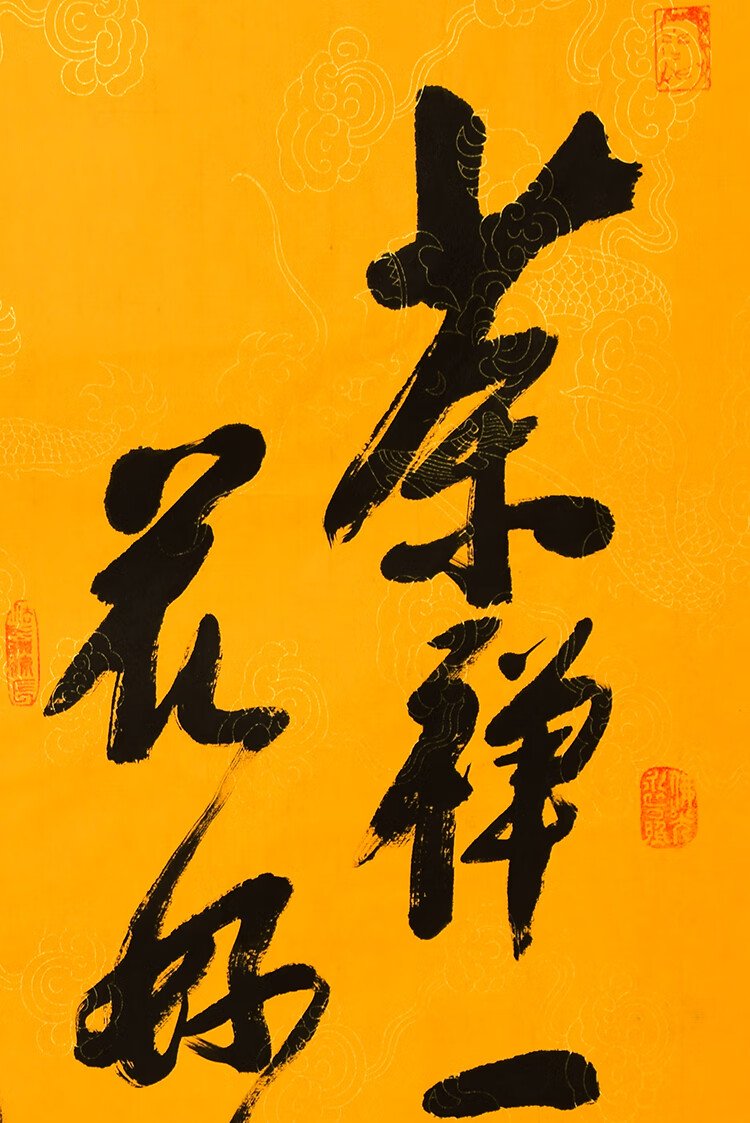 茶禅一
花好